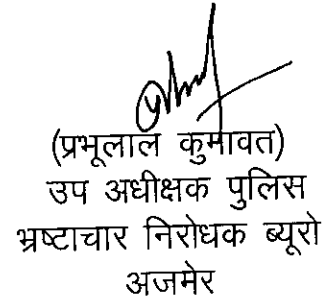 (प्रभूलाल कुमावत)
उप अधीक्षक पुलिस
भ्रष्टाचार निरोधक ब्यूरो
अजमेर